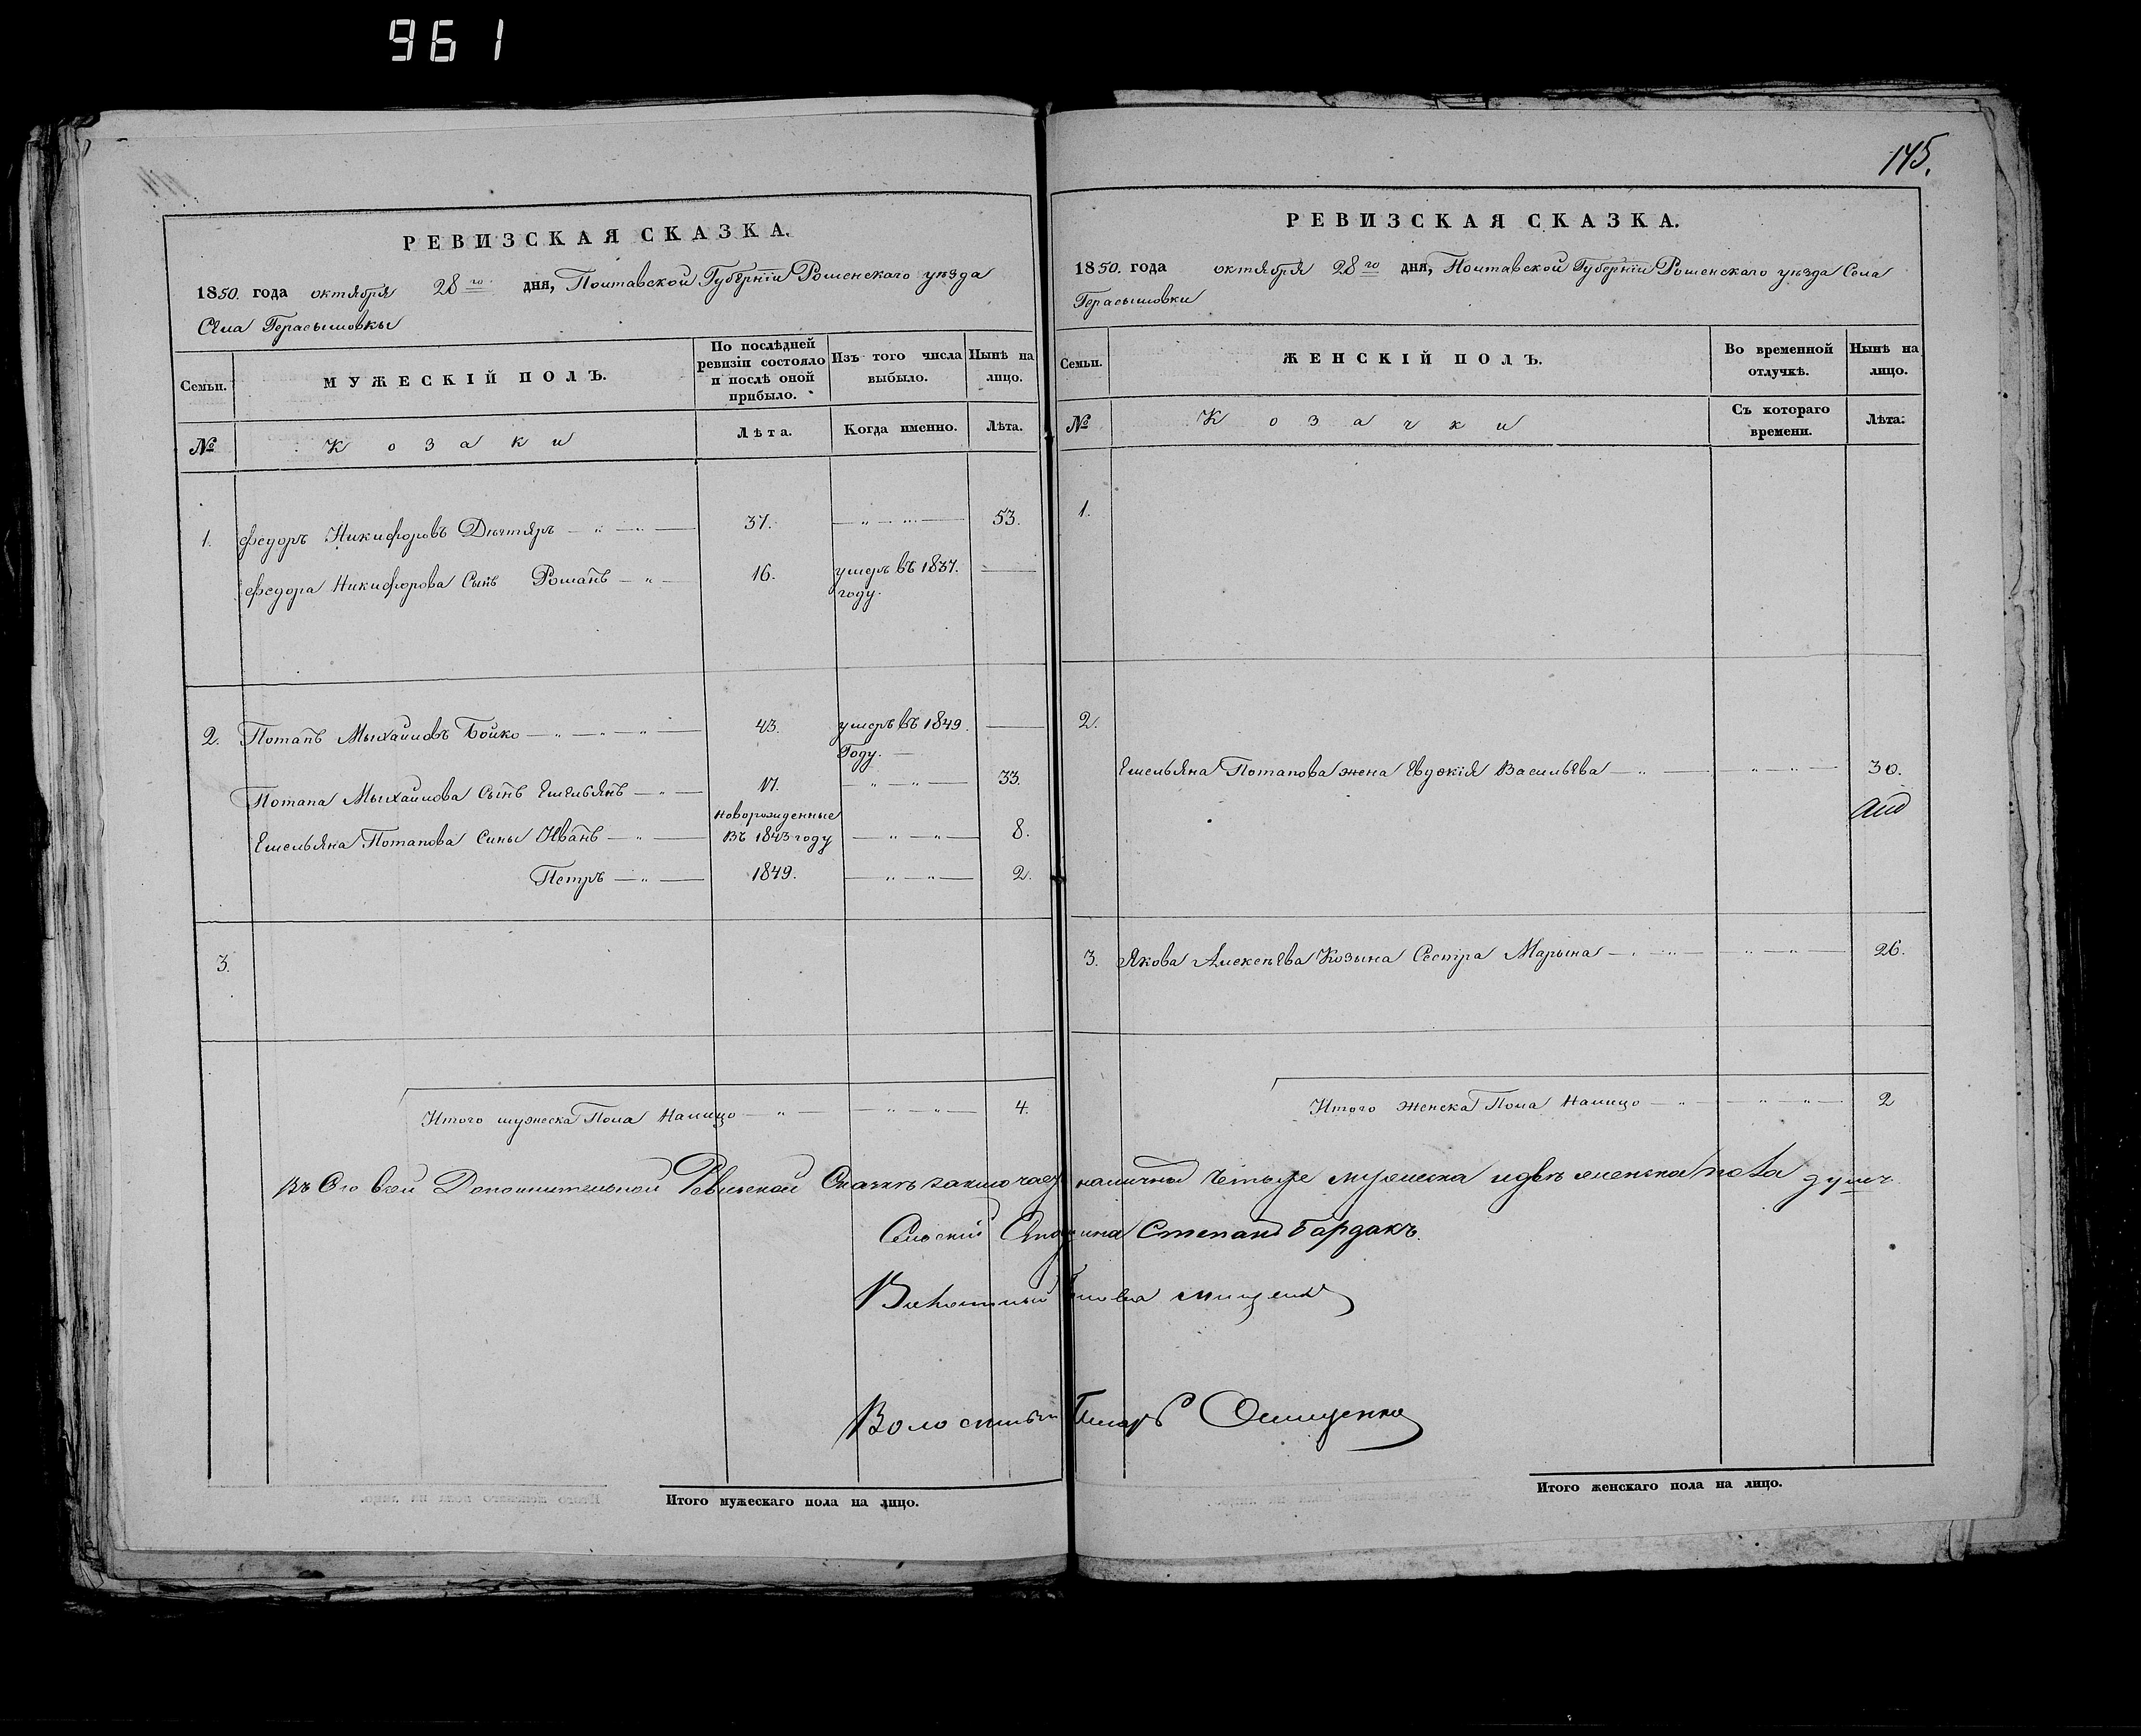 961
145.
РЕВИЗСКАЯ СКАЗКА.
1850. года октября 28го дня, Полтавской Губерніи Роменскаго уѣзда
Села Герасымовкы
Семьи.
МУЖЕСКІЙ ПОЛЪ.
По послѣдней ревизіи состояло и послѣ оной прибыло.
Изъ того числа выбыло.
Нынѣ на лицо.
№
Козаки
Лѣта.
Когда именно.
Лѣта.
1. Федоръ Никифоровъ Дегтяръ 37. 53.
Федора Никифорова Сынъ Романъ 16. умеръ въ 1837. году.
2. Потапъ Мыхайловъ Бойко 43. умеръ въ 1849. Году.
Потапа Мыхайлова Сынъ Емельянъ 17. 33.
новорожденные
Емельяна Потапова Сины Иванъ въ 1843 году 8.
Петръ 1849. 2.
3.
Итого мужеска Пола Налицо 4.
РЕВИЗСКАЯ СКАЗКА.
1850. года октября 28го дня, Полтавской Губерніи Роменскаго уѣзда Села
Герасымовки
Семьи.
ЖЕНСКІЙ ПОЛЪ.
Во временной отлучкѣ.
Нынѣ на лицо.
№
Козачки
Съ котораго времени.
Лѣта.
1.
2.
Емельяна Потапова жена Евдокія Васильева 30.
3. Якова Алексѣева Козына Сестра Марына 26.
Итого Женска Пола Налицо 2
Въ Сей Дополнительной Ревизской Сказкѣ заключает наличных четыре мужеска и двѣ женска пола душъ.
Сельский Старшина Степанъ Бардакъ.
Волостный Голова
Волостный Писарь Онищенко
Итого мужескаго пола на лицо.
Итого женскаго пола на лицо.